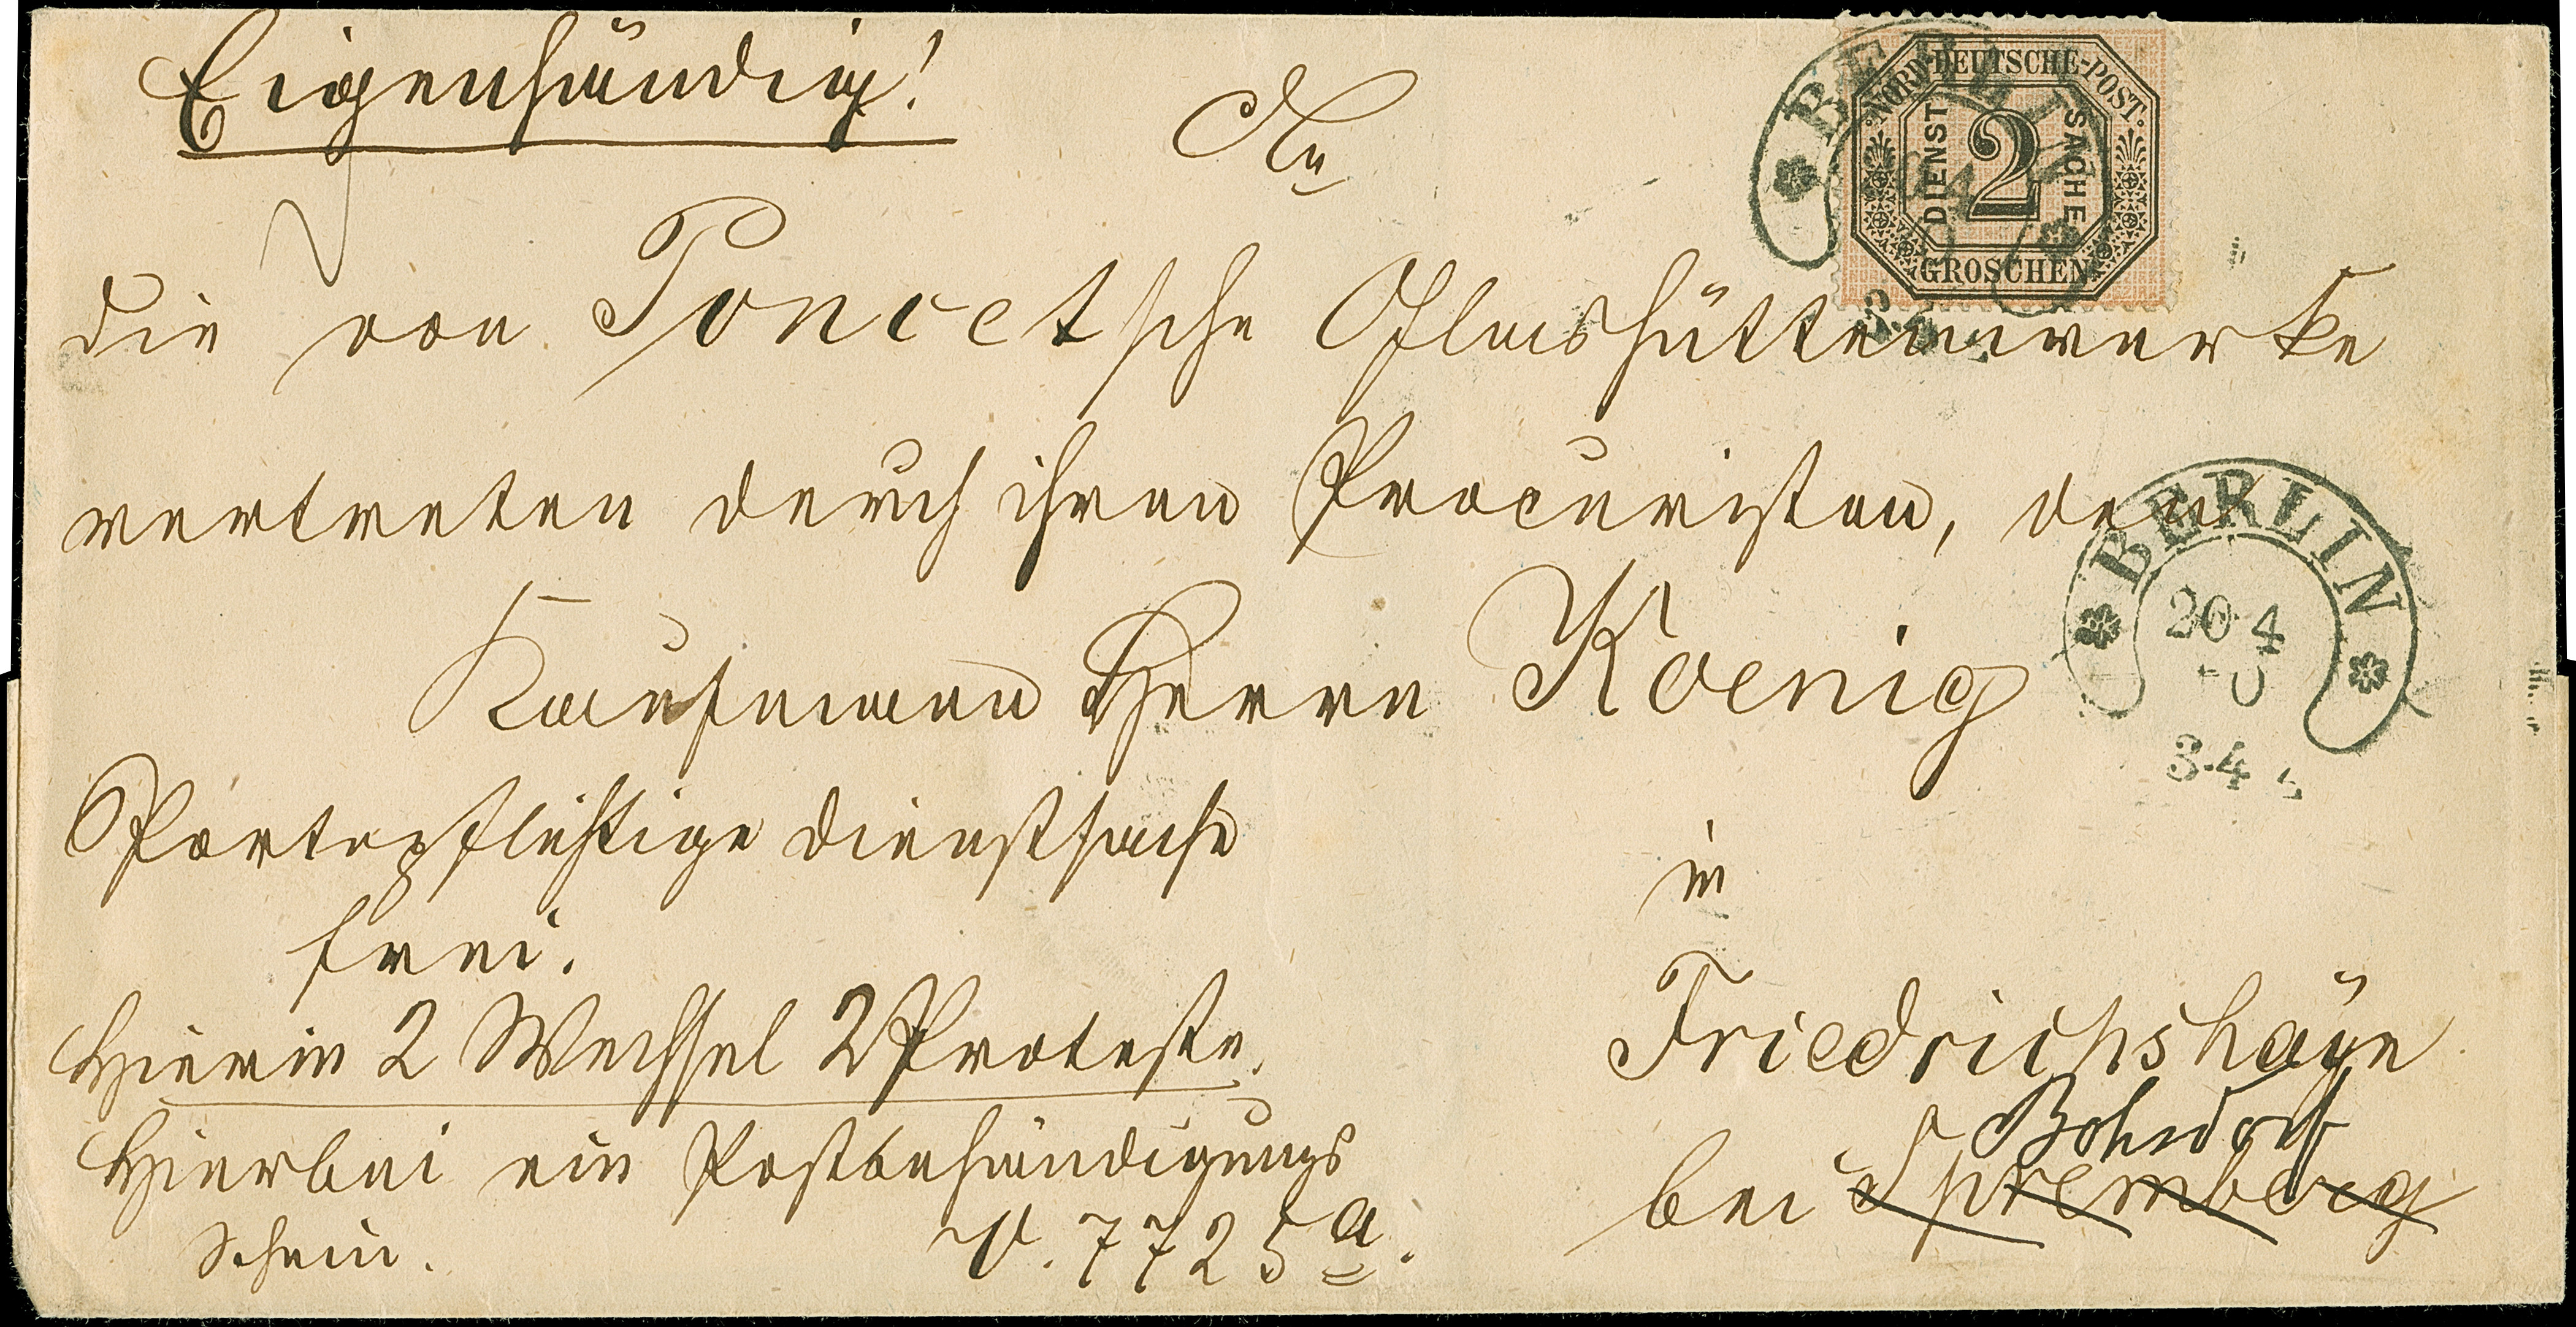 Eigenhändig!
An
NORD-DEUTSCHE-POST
DIENST 2 SACHE
GROSCHEN
BERLIN
die von Poncetsche Glashüttenwerke
vertreten durch ihren Procuristen, den
Kaufmann Herrn Koenig
BERLIN
20 4
3-4
Portopflichtige Dienstsache
frei.
in
Hierin 2 Wechsel 2 Proteste.
Friedrichshayn
Hierbei ein Postbehändigungs
Bohsdorf
bei Spremberg
Schein.
V. 7725 a.